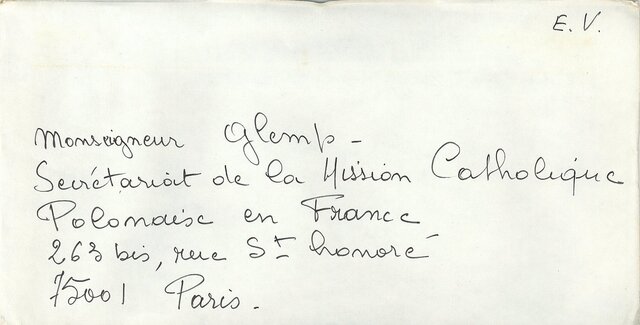 E. V.
Monseigneur Glemp -
Secrétariat de la Mission Catholique
Polonaise en France
263 bis, rue St honoré
75001 Paris.